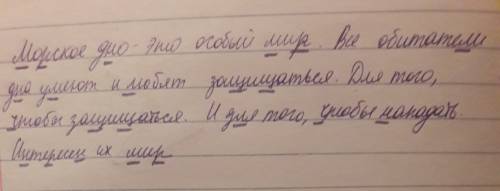 Морское дно - это особый мир. Все обитатели
дна умеют и любят защищаться. Для того,
чтобы защищаться. И для того, чтобы нападать.
Интересен их мир